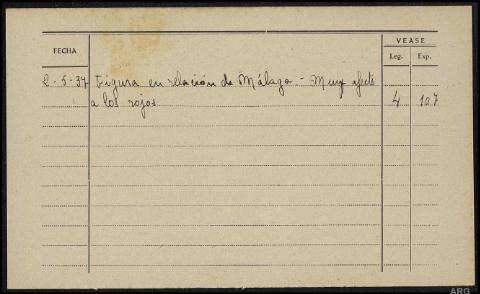 FECHA
VEASE
Leg. Exp.
2-5-37 Figura en relación de Málaga.- Muy afecto
a los rojos 4 107
ARG